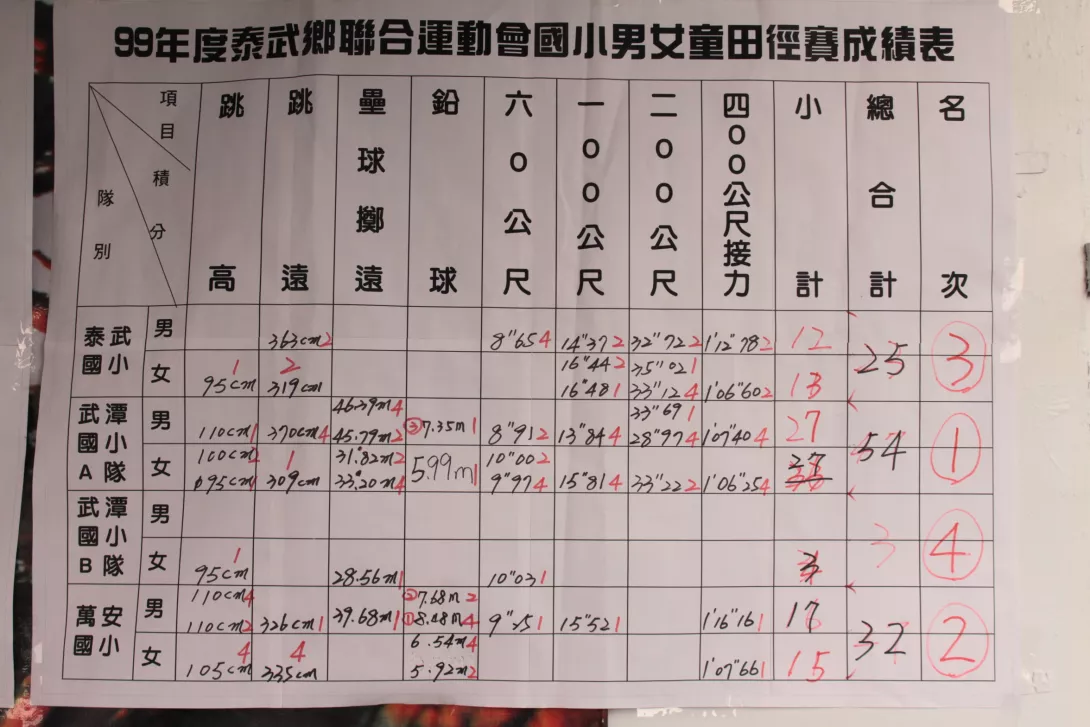 99年度泰武鄉聯合運動會國小男女童田徑賽成績表
項目 積分 隊別 跳高 跳遠 壘球擲遠 鉛球 六0公尺 一00公尺 二00公尺 四00公尺接力 小計 總合計 名次
泰武國小 男 363cm 2 8"65 4 14"37 2 32"72 2 1'12"78 2 12 25 3
女 95cm 1 319cm 2 16"44 2 16"48 1 35"02 1 33"12 4 1'06"60 2 13
武潭國小A隊 男 110cm 1 370cm 4 46.39m 4 45.79m 2 ③7.35m 1 8"91 2 13"84 4 33"69 1 28"97 4 1'07"40 4 27 54 1
女 100cm 2 095cm 1 309cm 1 31.82m 2 33.20m 4 5.99m 1 10"00 2 9"97 4 15"81 4 33"22 2 1'06"25 4 27
武潭國小B隊 男 3 4
女 95cm 1 28.56m 1 10"03 1 3
萬安國小 男 110cm 4 110cm 2 326cm 1 39.68m 1 ②7.68m 2 ①8.48m 4 9"51 1 15"52 1 1'16"16 1 17 32 2
女 105cm 4 335cm 4 6.54m 4 5.92m 2 1'07"66 1 15